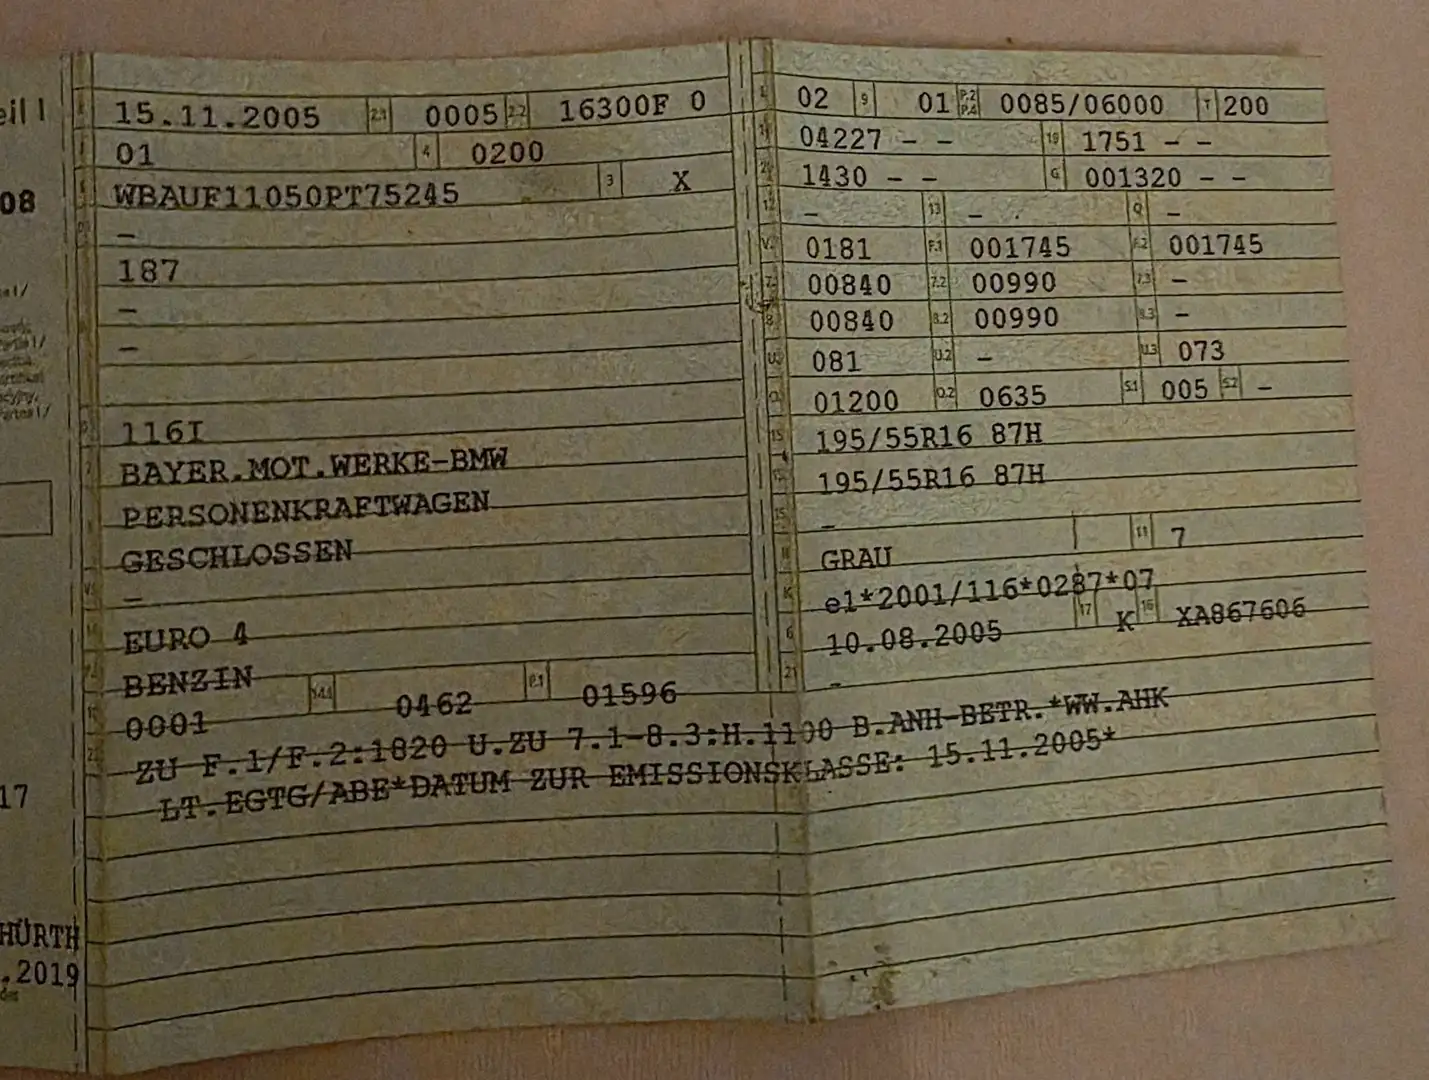 eil I
08
17
HÜRTH
.2019
15.11.2005 2.1 0005 2.2 16300F 0
01 4 0200
WBAUF11050PT75245 3 X
–
187
–
–
116I
BAYER.MOT.WERKE-BMW
PERSONENKRAFTWAGEN
GESCHLOSSEN
–
EURO 4
BENZIN
0001 14.1 0462 P.1 01596
02 9 01 P.2 P.4 0085/06000 T 200
04227 – – 19 1751 – –
1430 – – G 001320 – –
– 13 – Q –
0181 F.1 001745 F.2 001745
00840 7.2 00990 7.3 –
00840 8.2 00990 8.3 –
081 U.2 – U.3 073
01200 O.2 0635 S.1 005 S.2 –
195/55R16 87H
195/55R16 87H
–
GRAU 11 7
K e1*2001/116*0287*07
6 10.08.2005 17 K 16 XA867606
21 –
ZU F.1/F.2:1820 U.ZU 7.1-8.3:H.1100 B.ANH-BETR.*WW.AHK
LT.EGTG/ABE*DATUM ZUR EMISSIONSKLASSE: 15.11.2005*